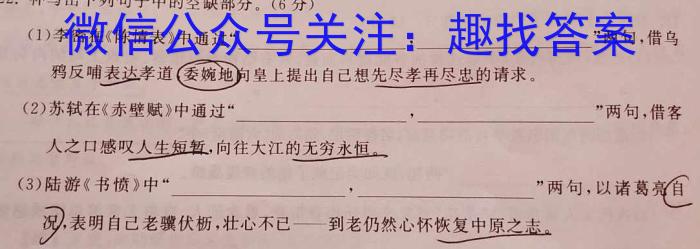 补写出下列句子中的空缺部分。(6分)
(1)李密在《陈情表》中通过“ ”两句,借乌
微信公众号关注：趣找答案
鸦反哺表达孝道,委婉地向皇上提出自己想先尽孝再尽忠的请求。
(2)苏轼在《赤壁赋》中通过“____________,____________”两句,借客
人之口感叹人生短暂,向往大江的无穷永恒。
(3)陆游《书愤》中“____________,____________”两句,以诸葛亮自
况,表明自己老骥伏枥,壮心不已——到老仍然心怀恢复中原之志。